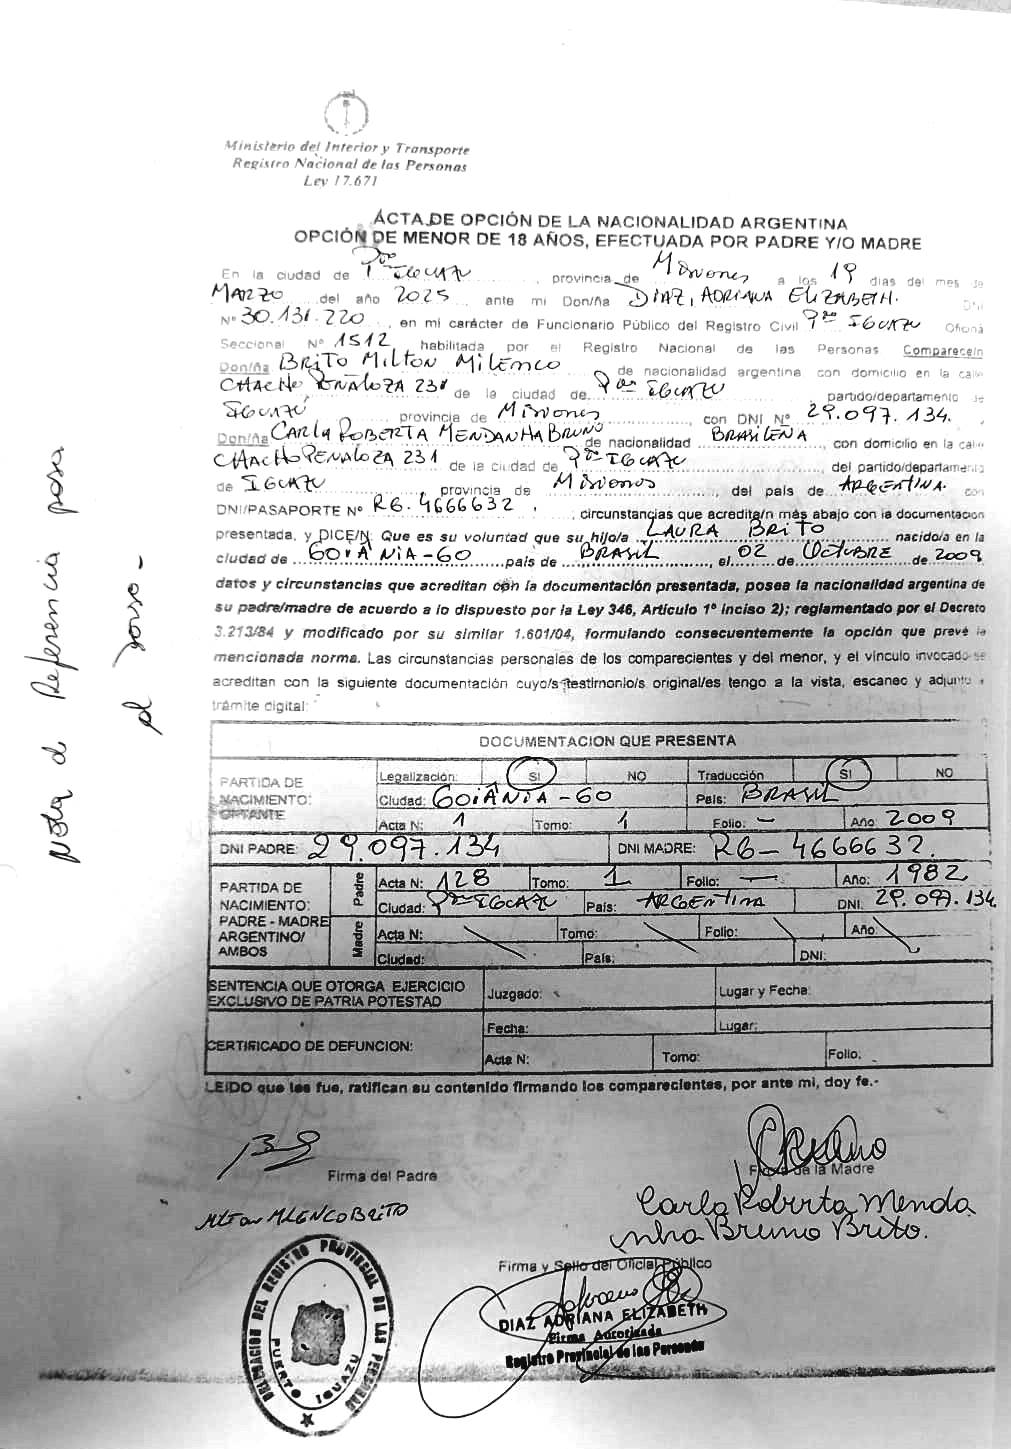 Ministerio del Interior y Transporte
Registro Nacional de las Personas
Ley 17.671
ACTA DE OPCIÓN DE LA NACIONALIDAD ARGENTINA
OPCIÓN DE MENOR DE 18 AÑOS, EFECTUADA POR PADRE Y/O MADRE
En la ciudad de Pto IGUAZU, provincia de Misiones a los 19 dias del mes de
MARZO del año 2025 ante mi Don/ña DIAZ, ADRIANA ELIZABETH. DNI
Nº 30.131.220, en mi carácter de Funcionario Público del Registro Civil Pto IGUAZU Oficina
Seccional Nº 1512 habilitada por el Registro Nacional de las Personas Comparece/n
Don/ña BRITO MILTON MILENCO de nacionalidad argentina con domicilio en la calle
CHACHO PEÑALOZA 231 de la ciudad de Pto IGUAZU, partido/departamento de
IGUAZÚ provincia de Misiones, con DNI Nº 29.097.134.
Don/ña CARLA ROBERTA MENDANHA BRUNO de nacionalidad BRASILEÑA, con domicilio en la calle
CHACHO PEÑALOZA 231 de la ciudad de Pto IGUAZU, del partido/departamento
de IGUAZU, provincia de Misiones, del país de ARGENTINA. con
DNI/PASAPORTE Nº RG. 4666632., circunstancias que acredita/n más abajo con la documentación
presentada, y DICE/N: Que es su voluntad que su hijo/a LAURA BRITO nacido/a en la
ciudad de GOIÂNIA-GO país de BRASIL, el 02 de Octubre de 2009
datos y circunstancias que acreditan con la documentación presentada, posea la nacionalidad argentina de
su padre/madre de acuerdo a lo dispuesto por la Ley 346, Artículo 1º inciso 2); reglamentado por el Decreto
3.213/84 y modificado por su similar 1.601/04, formulando consecuentemente la opción que prevé la
mencionada norma. Las circunstancias personales de los comparecientes y del menor, y el vínculo invocado se
acreditan con la siguiente documentación cuyo/s testimonio/s original/es tengo a la vista, escaneo y adjunto a
trámite digital:
DOCUMENTACION QUE PRESENTA
PARTIDA DE NACIMIENTO: OPTANTE
Legalización: SI NO Traducción SI NO
Ciudad: GOIÂNIA-GO País: BRASIL
Acta N: 1 Tomo: 1 Folio: — Año: 2009
DNI PADRE: 29.097.134 DNI MADRE: RG-4666632.
PARTIDA DE NACIMIENTO: PADRE - MADRE ARGENTINO/ AMBOS
Padre Acta N: 128 Tomo: 1 Folio: — Año: 1982
Ciudad: Pto IGUAZU País: ARGENTINA DNI: 29.097.134
Madre Acta N: Tomo: Folio: Año:
Ciudad: País: DNI:
SENTENCIA QUE OTORGA EJERCICIO EXCLUSIVO DE PATRIA POTESTAD Juzgado: Lugar y Fecha:
CERTIFICADO DE DEFUNCION: Fecha: Lugar:
Acta N: Tomo: Folio:
LEIDO que les fue, ratifican su contenido firmando los comparecientes, por ante mi, doy fe.-
Firma del Padre
Firma de la Madre
Milton MILENCO BRITO
Carla Roberta Menda
nha Bruno Brito.
Firma y Sello del Oficial Público
DIAZ ADRIANA ELIZABETH
Firma Autorizada
Registro Provincial de las Personas
DELEGACION DEL REGISTRO PROVINCIAL DE LAS PERSONAS
PUERTO IGUAZU
Nota de Referencia pasa
al dorso -